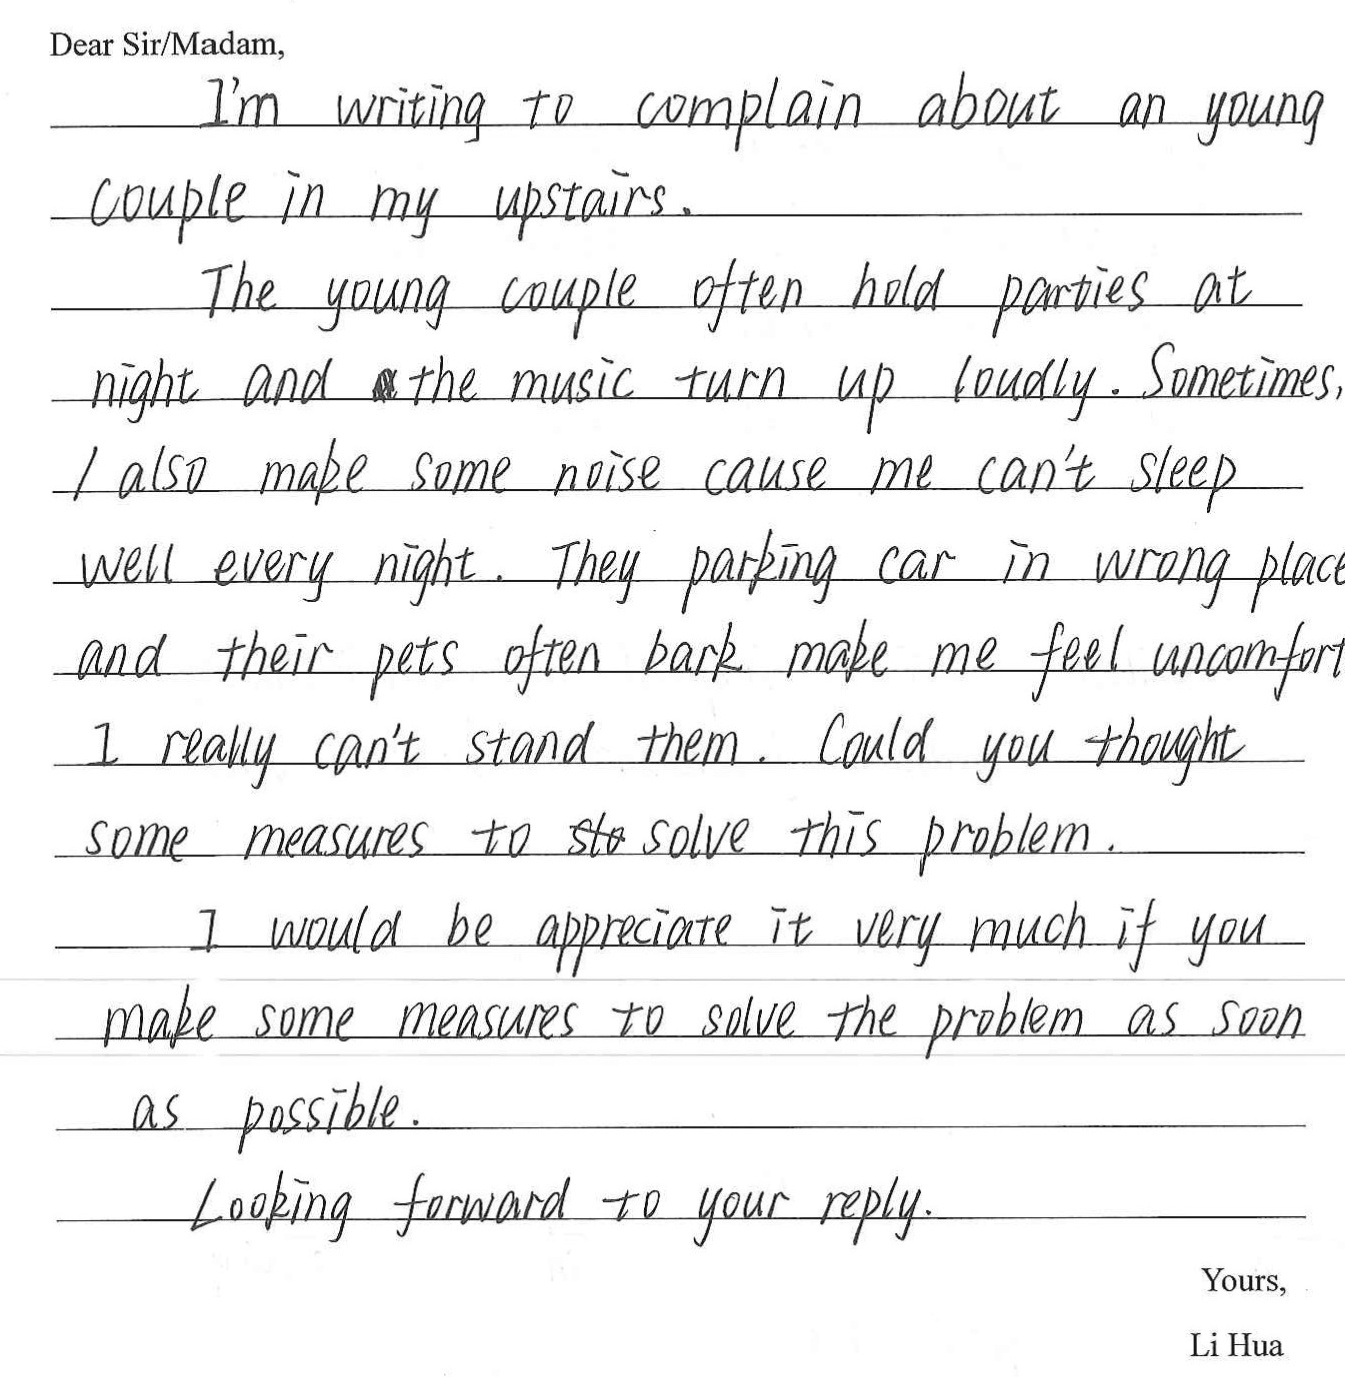 Dear Sir/Madam,
I'm writing to complain about an young
couple in my upstairs.
The young couple often hold parties at
night and the music turn up loudly. Sometimes,
I also make some noise cause me can't sleep
well every night. They parking car in wrong place
and their pets often bark make me feel uncomfort
I really can't stand them. Could you thought
some measures to sto solve this problem.
I would be appreciate it very much if you
make some measures to solve the problem as soon
as possible.
Looking forward to your reply.
Yours,
Li Hua